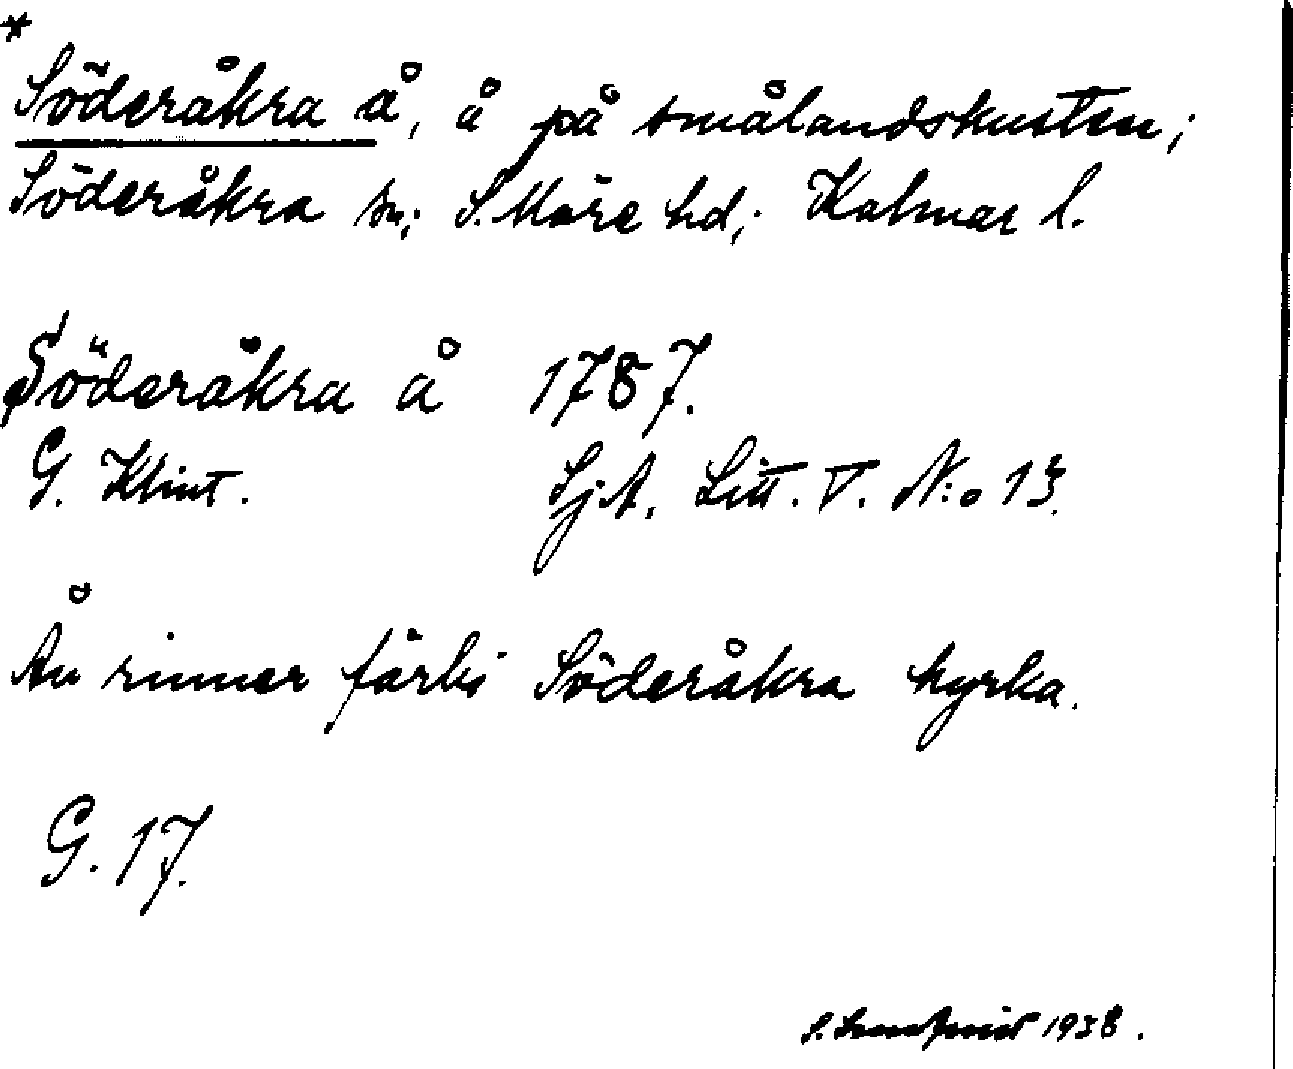 *
Söderåkra å, å på smålandskusten;
Söderåkra sn; S. Möre hd; Kalmar l.
Söderåkra å 1787.
G. Klint. Sj.A. Litt. V. N:o 13.
Ån rinner förbi Söderåkra kyrka.
G. 17.
S. 1938.